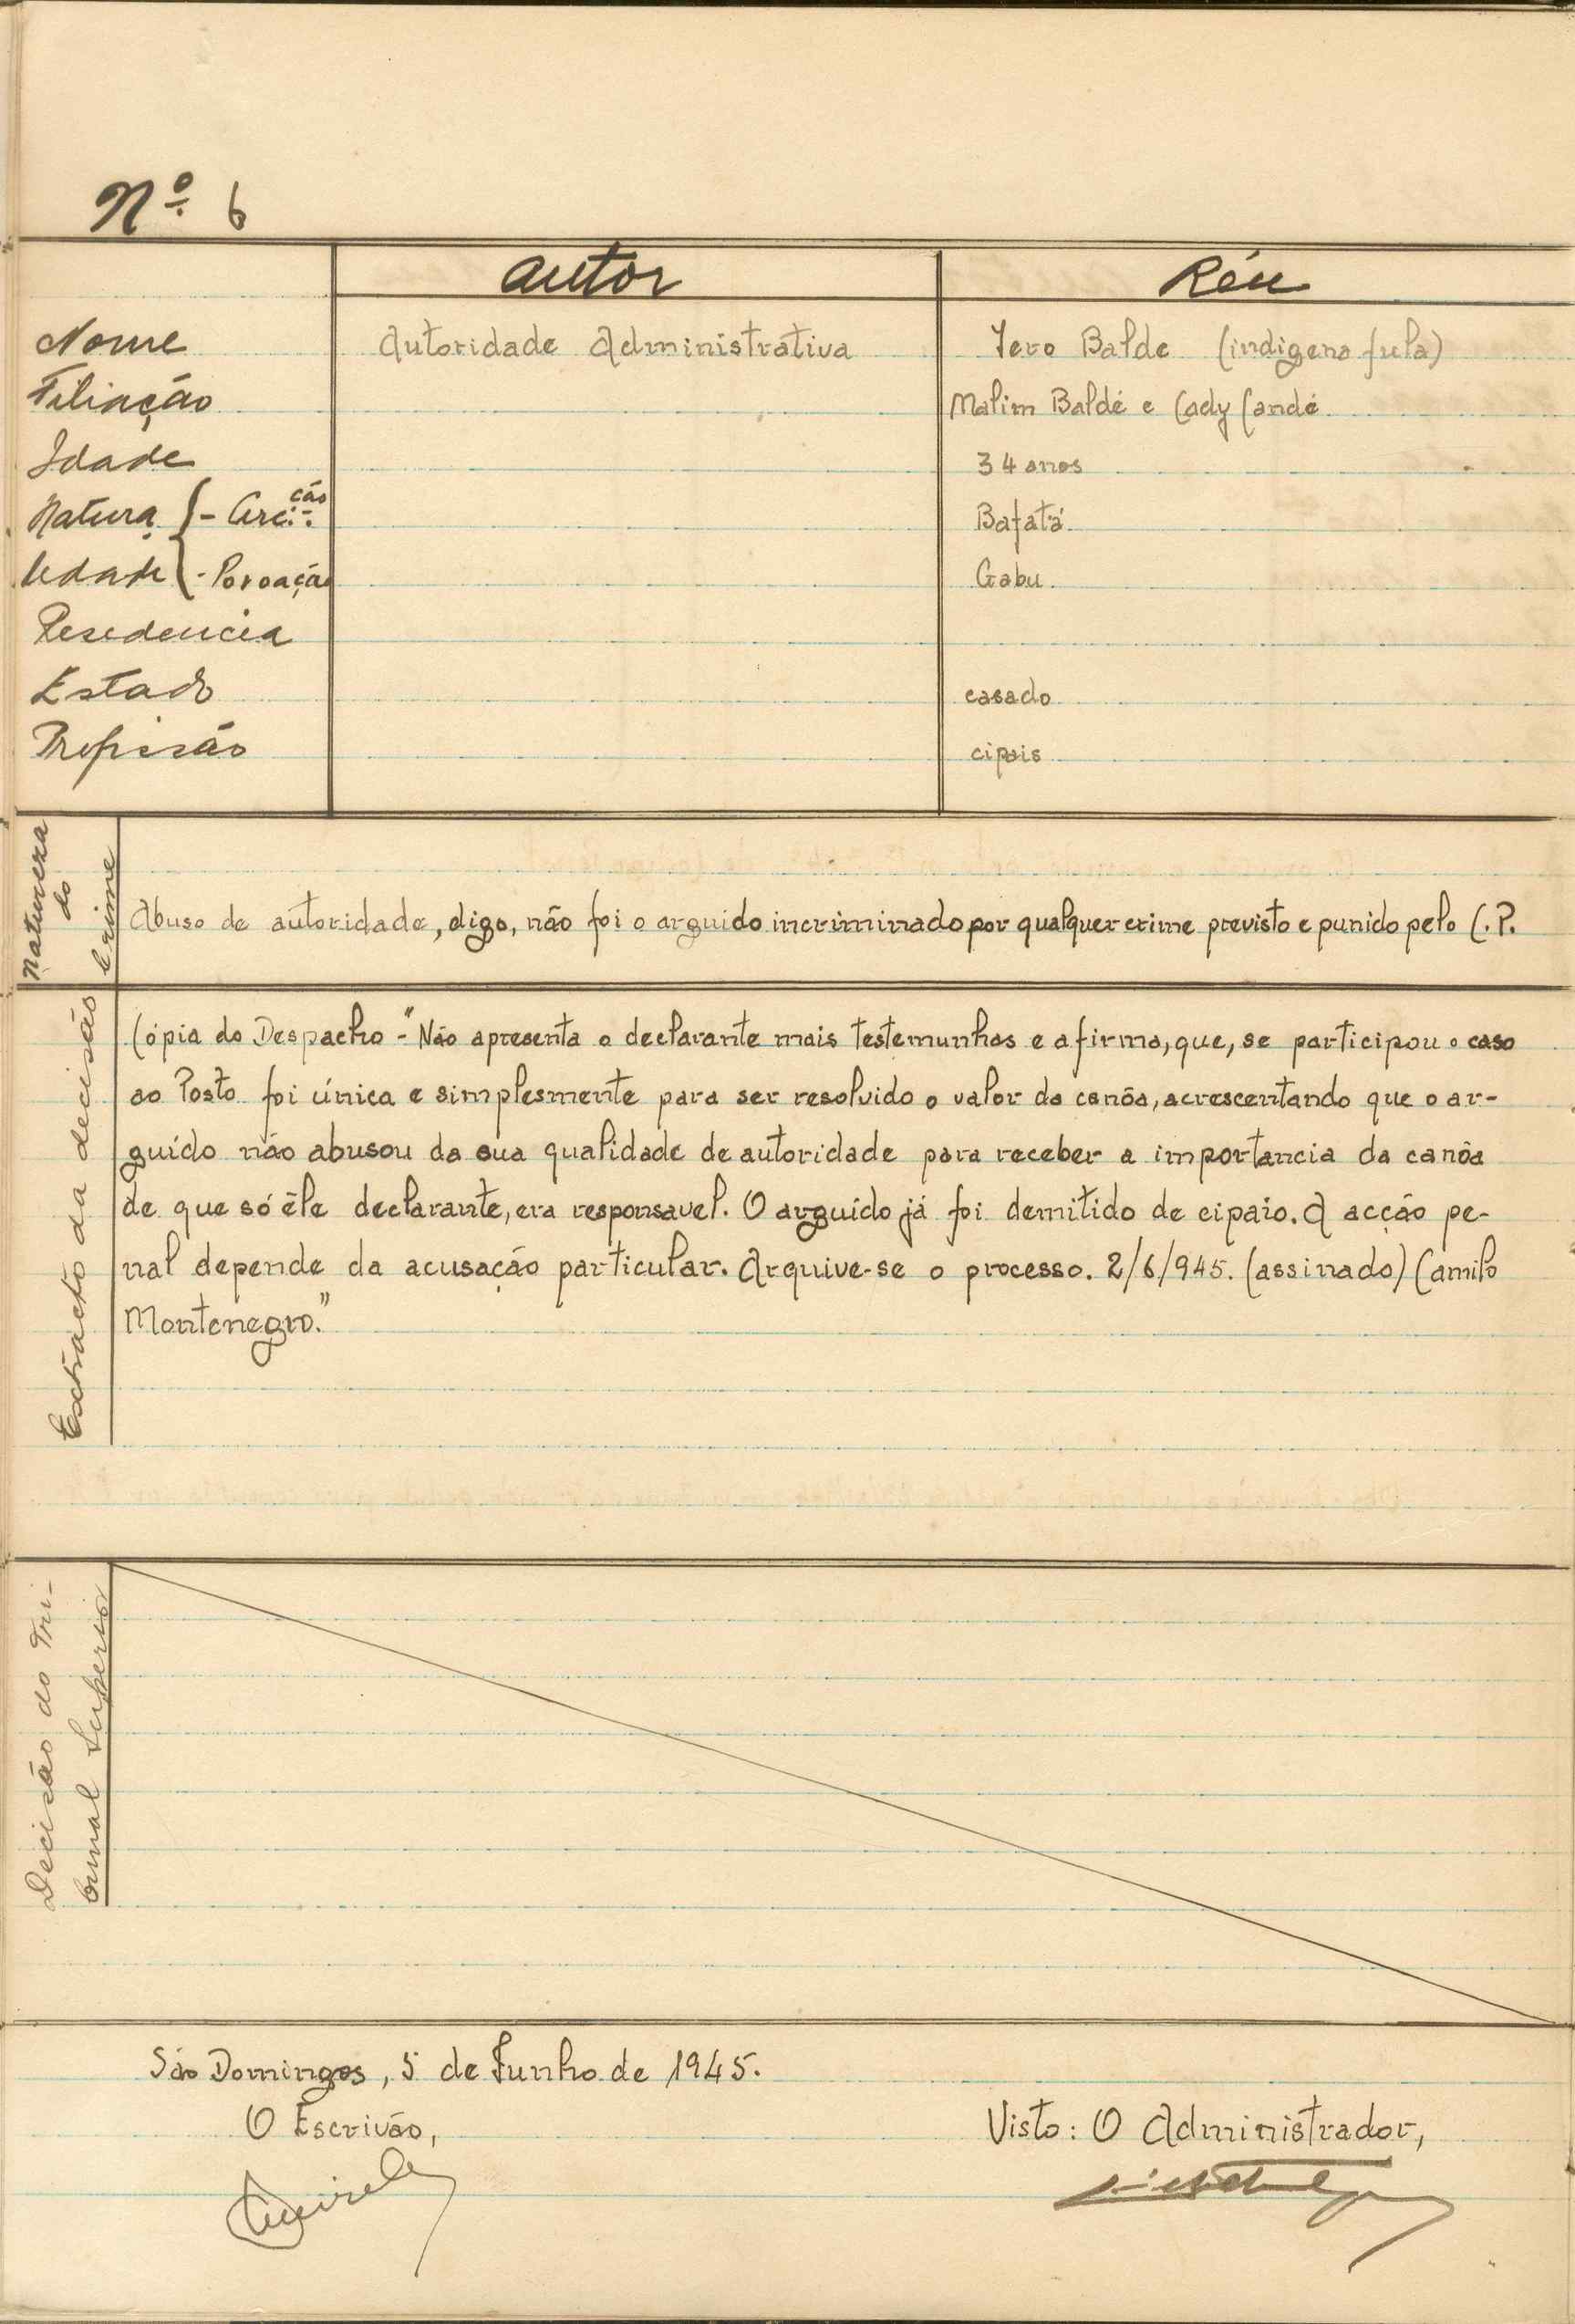 Nº 6
Autor Réu
Nome Autoridade Administrativa Iero Balde (indigena fula)
Filiação Malim Baldé e Cady Candé
Idade 34 anos
Natura - Circ.ção Bafatá
lidade - Povoação Gabu
Resedencia
Estado casado
Profissão cipais
Natureza do Crime
Abuso de autoridade, digo, não foi o arguido incriminado por qualquer crime previsto e punido pelo C.P.
Extracto da decisão
Cópia do Despacho - "Não apresenta o declarante mais testemunhas e afirma, que, se participou o caso
ao Posto foi única e simplesmente para ser resolvido o valor da canôa, acrescentando que o ar-
guído não abusou da sua qualidade de autoridade para receber a importancia da canôa
de que só êle declarante, era responsavel. O arguído já foi demitido de cipaio. A acção pe-
nal depende da acusação particular. Arquive-se o processo. 2/6/945. (assinado) Camilo
Montenegro."
Decisão do Tri-
bunal Superior
São Domingos, 5 de Junho de 1945.
O Escrivão, Visto: O Administrador,